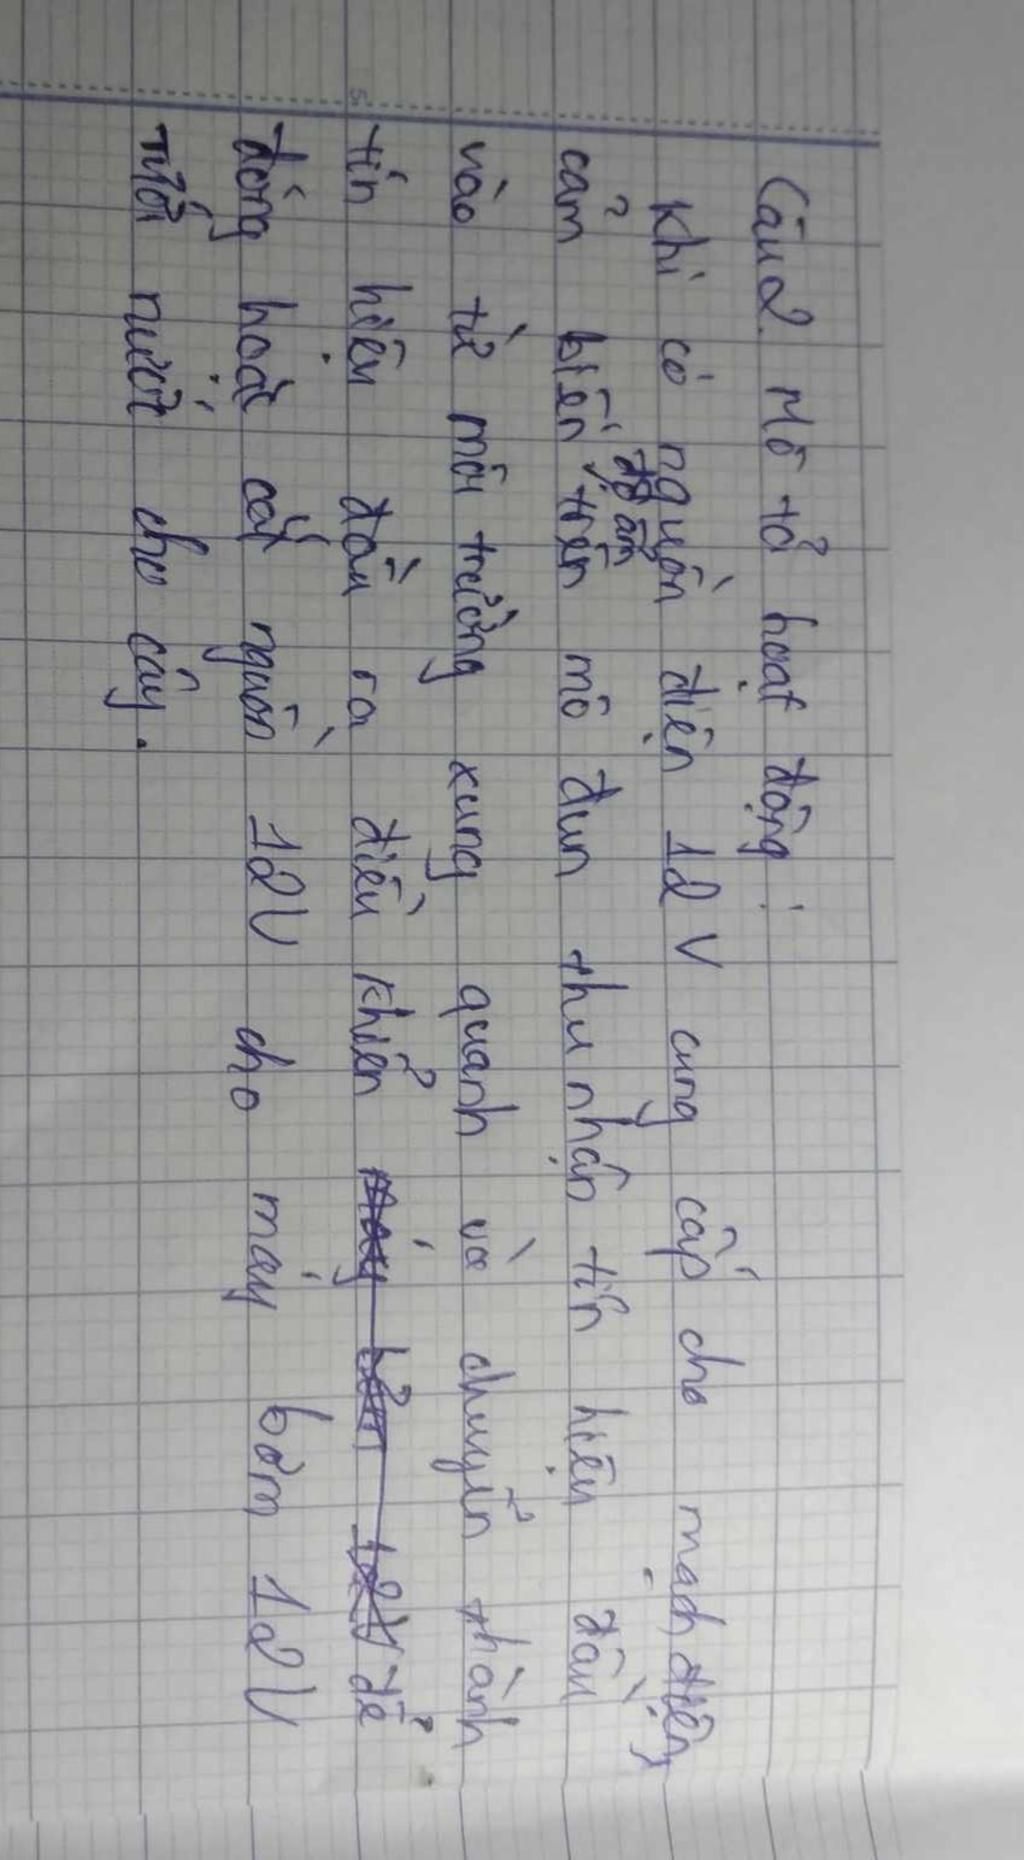 Câu 2. Mô tả hoạt động:
Khi có nguồn điện 12V cung cấp cho mạch điện,
cảm biến độ ẩm trên mô đun thu nhận tín hiệu đầu
vào từ môi trường xung quanh và chuyển thành
tín hiệu đầu ra điều khiển máy bơm 12V để
đóng hoặc cắt nguồn 12V cho máy bơm 12V
tưới nước cho cây.